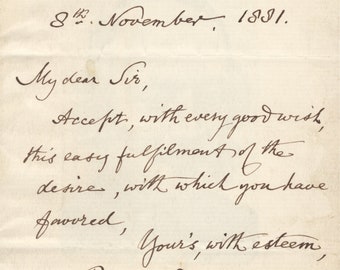 8th. November, 1881.
My dear Sir,
Accept, with every good wish,
this easy fulfilment of the
desire, with which you have
favored,
Your's, with esteem,